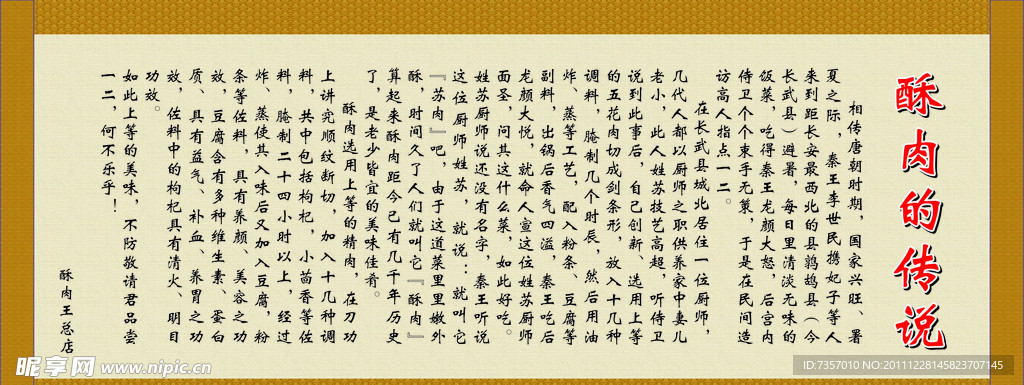 酥肉的传说
相传唐朝时期，国家兴旺、署
夏之际，秦王李世民携妃子等人
来到距长安最西北的县鹑鸪县（今
长武县）避署，每日里清淡无味的
饭菜，吃得秦王龙颜大怒，后宫内
侍卫个个束手无策，于是在民间造
访高人指点一二。
在长武县城北居住一位厨师，
几代人都以厨师之职供养家中妻儿
老小，此人姓苏技艺高超，听侍卫
说到此事后，自己创新、选用上等
的五花肉切成剑条形，放入十几种
调料，腌制几个时辰，然后用油
炸、蒸等工艺，配入粉条、豆腐等
副料，出锅后香气四溢，秦王吃后
龙颜大悦，就命人宣这位姓苏厨师
面圣，问其这什么菜，如此好吃。
姓苏厨师说还没有名字，秦王听说
这位厨师姓苏，就说：就叫它
『苏肉』吧，由于这道菜里里嫩外
酥，时间久了人们就叫它『酥肉』
算起来酥肉距今己有几千年历史
了，是老少皆宜的美味佳肴。
酥肉选用上等的精肉，在刀功
上讲究顺纹断切，加入十几种调
料，共中包括枸杞，小茴香等佐
料，腌制二十四小时以上，经过
炸、蒸使其入味后又加入豆腐，粉
条等佐料，具有养颜、美容之功
效，豆腐含有多种维生素、蛋白
质、具有益气、补血、养胃之功
效，佐料中的枸杞具有清火、明目
功效。
如此上等的美味，不防敬请君品尝
一二，何不乐乎！
酥肉王总店
昵享网 www.nipic.cn
ID:7357010 NO:20111228145823707145